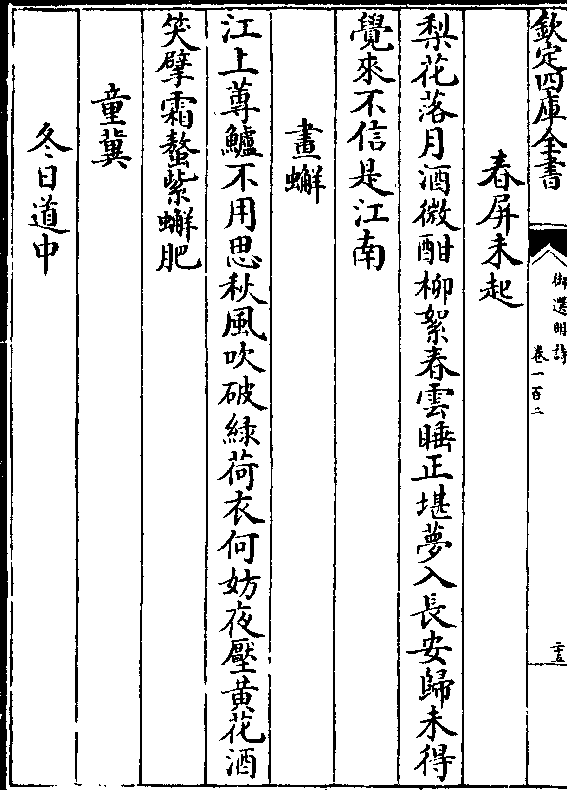 欽定四庫全書
御選明詩
卷一百二
二十五
春屏未起
梨花落月酒微酣柳絮春雲睡正堪夢入長安歸未得
覺來不信是江南
畫蠏
江上蓴鱸不用思秋風吹破緑荷衣何妨夜壓黄花酒
笑擘霜螯紫蠏肥
童冀
冬日道中